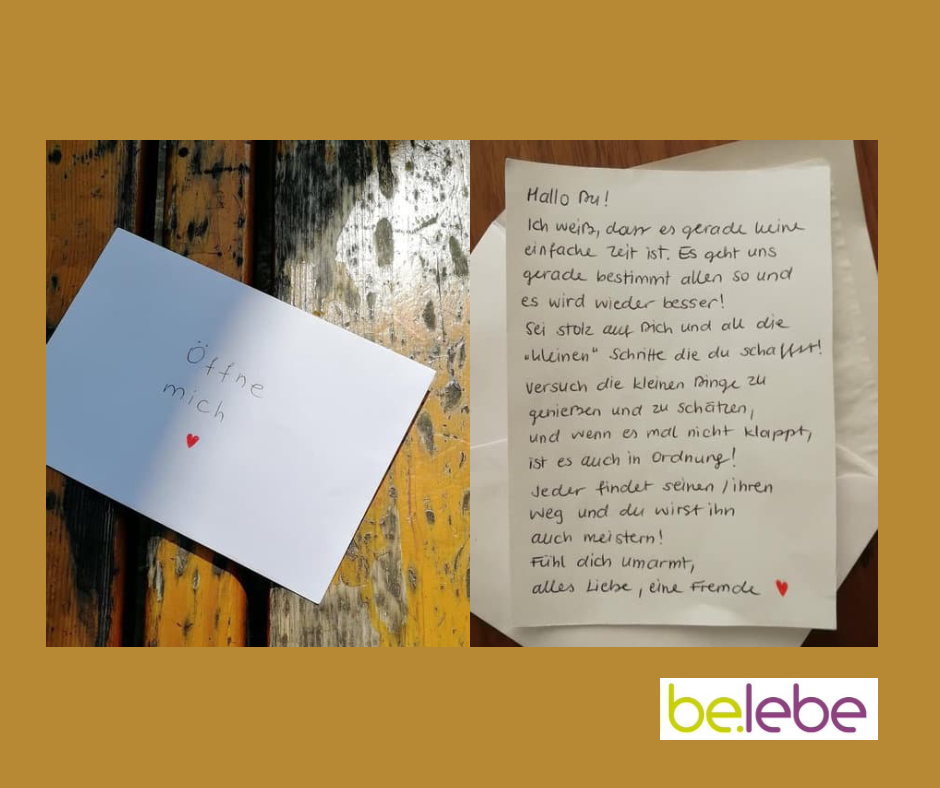 Öffne
mich
Hallo Du!
Ich weiß, dass es gerade keine
einfache Zeit ist. Es geht uns
gerade bestimmt allen so und
es wird wieder besser!
Sei stolz auf Dich und all die
„kleinen“ Schritte die du schaffst!
Versuch die kleinen Dinge zu
genießen und zu schätzen,
und wenn es mal nicht klappt,
ist es auch in Ordnung!
Jeder findet seinen / ihren
Weg und du wirst ihn
auch meistern!
Fühl dich umarmt,
alles Liebe, eine Fremde
be.lebe